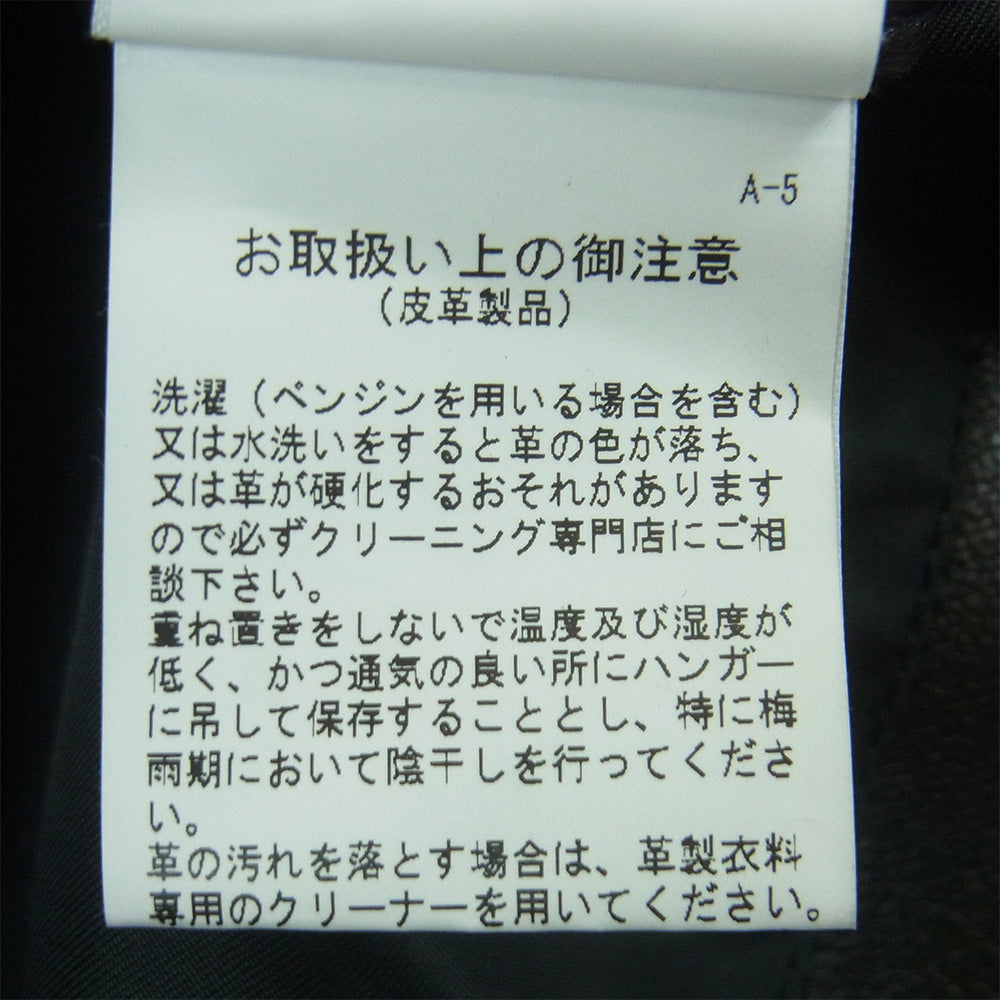 A-5
お取扱い上の御注意
(皮革製品)
洗濯(ベンジンを用いる場合を含む)
又は水洗いをすると革の色が落ち、
又は革が硬化するおそれがあります
ので必ずクリーニング専門店にご相
談下さい。
重ね置きをしないで温度及び湿度が
低く、かつ通気の良い所にハンガー
に吊して保存することとし、特に梅
雨期において陰干しを行ってくださ
い。
革の汚れを落とす場合は、革製衣料
専用のクリーナーを用いてください。